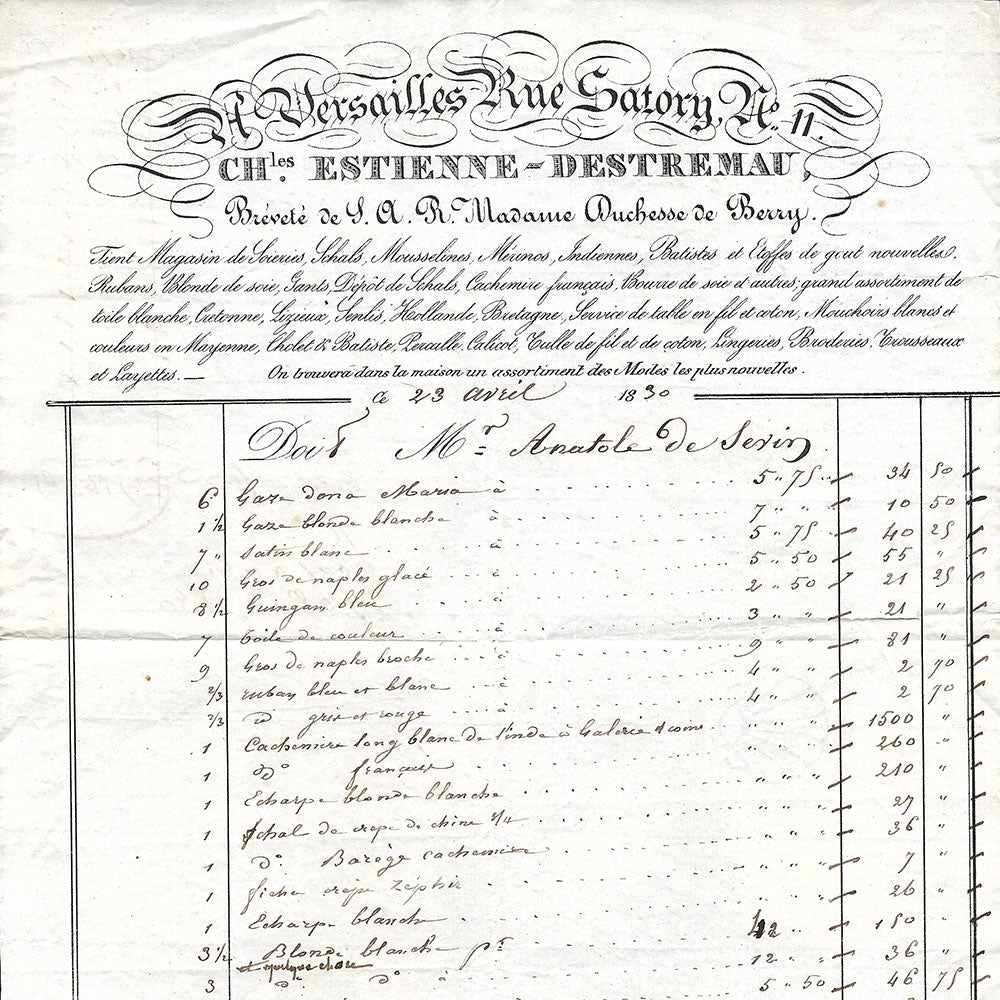 A Versailles Rue Satory, No. 11.
CHles. ESTIENNE-DESTREMAU,
Bréveté de S. A. R. Madame Duchesse de Berry.
Tient Magasin de Soieries, Schals, Mousselines, Mérinos, Indiennes, Batistes et Etoffes de gout nouvelles.
Rubans, Blonde de soie, Gants, Dépôt de Schals, Cachemire français, Bourre de soie et autres; grand assortiment de
toile blanche, Cretonne, Lizieux, Senlis, Hollande, Bretagne, Service de table en fil et coton, Mouchoirs blancs et
couleurs en Mayenne, Cholet & Batiste, Percalle, Calicot, Tulle de fil et de coton, Lingeries, Broderies, Trousseaux
et Layettes. — On trouvera dans la maison un assortiment des Modes les plus nouvelles.
Ce 23 avril 1830
Doit Mr Anatole de Serin
6 Gaze dona Maria à 5 " 75 34 50
1 1/2 Gaze blonde blanche à 7 " " 10 50
7 " Satin blanc à 5 " 75 40 25
10 Gros de naples glacé à 5 " 50 55 "
8 1/2 Guingam bleu à 2 " 50 21 25
7 toile de couleur à 3 " " 21 "
9 Gros de naples broché à 9 " " 81 "
2/3 ruban bleu et blanc à 4 " " 2 70
2/3 do gris et rouge à 4 " " 2 70
1 Cachemire long blanc de l'inde à Galerie & coins " " " 1500 "
1 do français 260 "
1 Echarpe blonde blanche " " " 210 "
1 Schal de crepe de chine 4/4 " " " 27 "
1 do. Barège cachemire " " " 36 "
1 fichu crêpe Zéphir 7 "
1 Echarpe blanche 26 "
3 1/2 Blonde blanche pr 42 " 150 "
et quelque chose
3 do. do à 12 " " 36 "
5 " 50 46 75